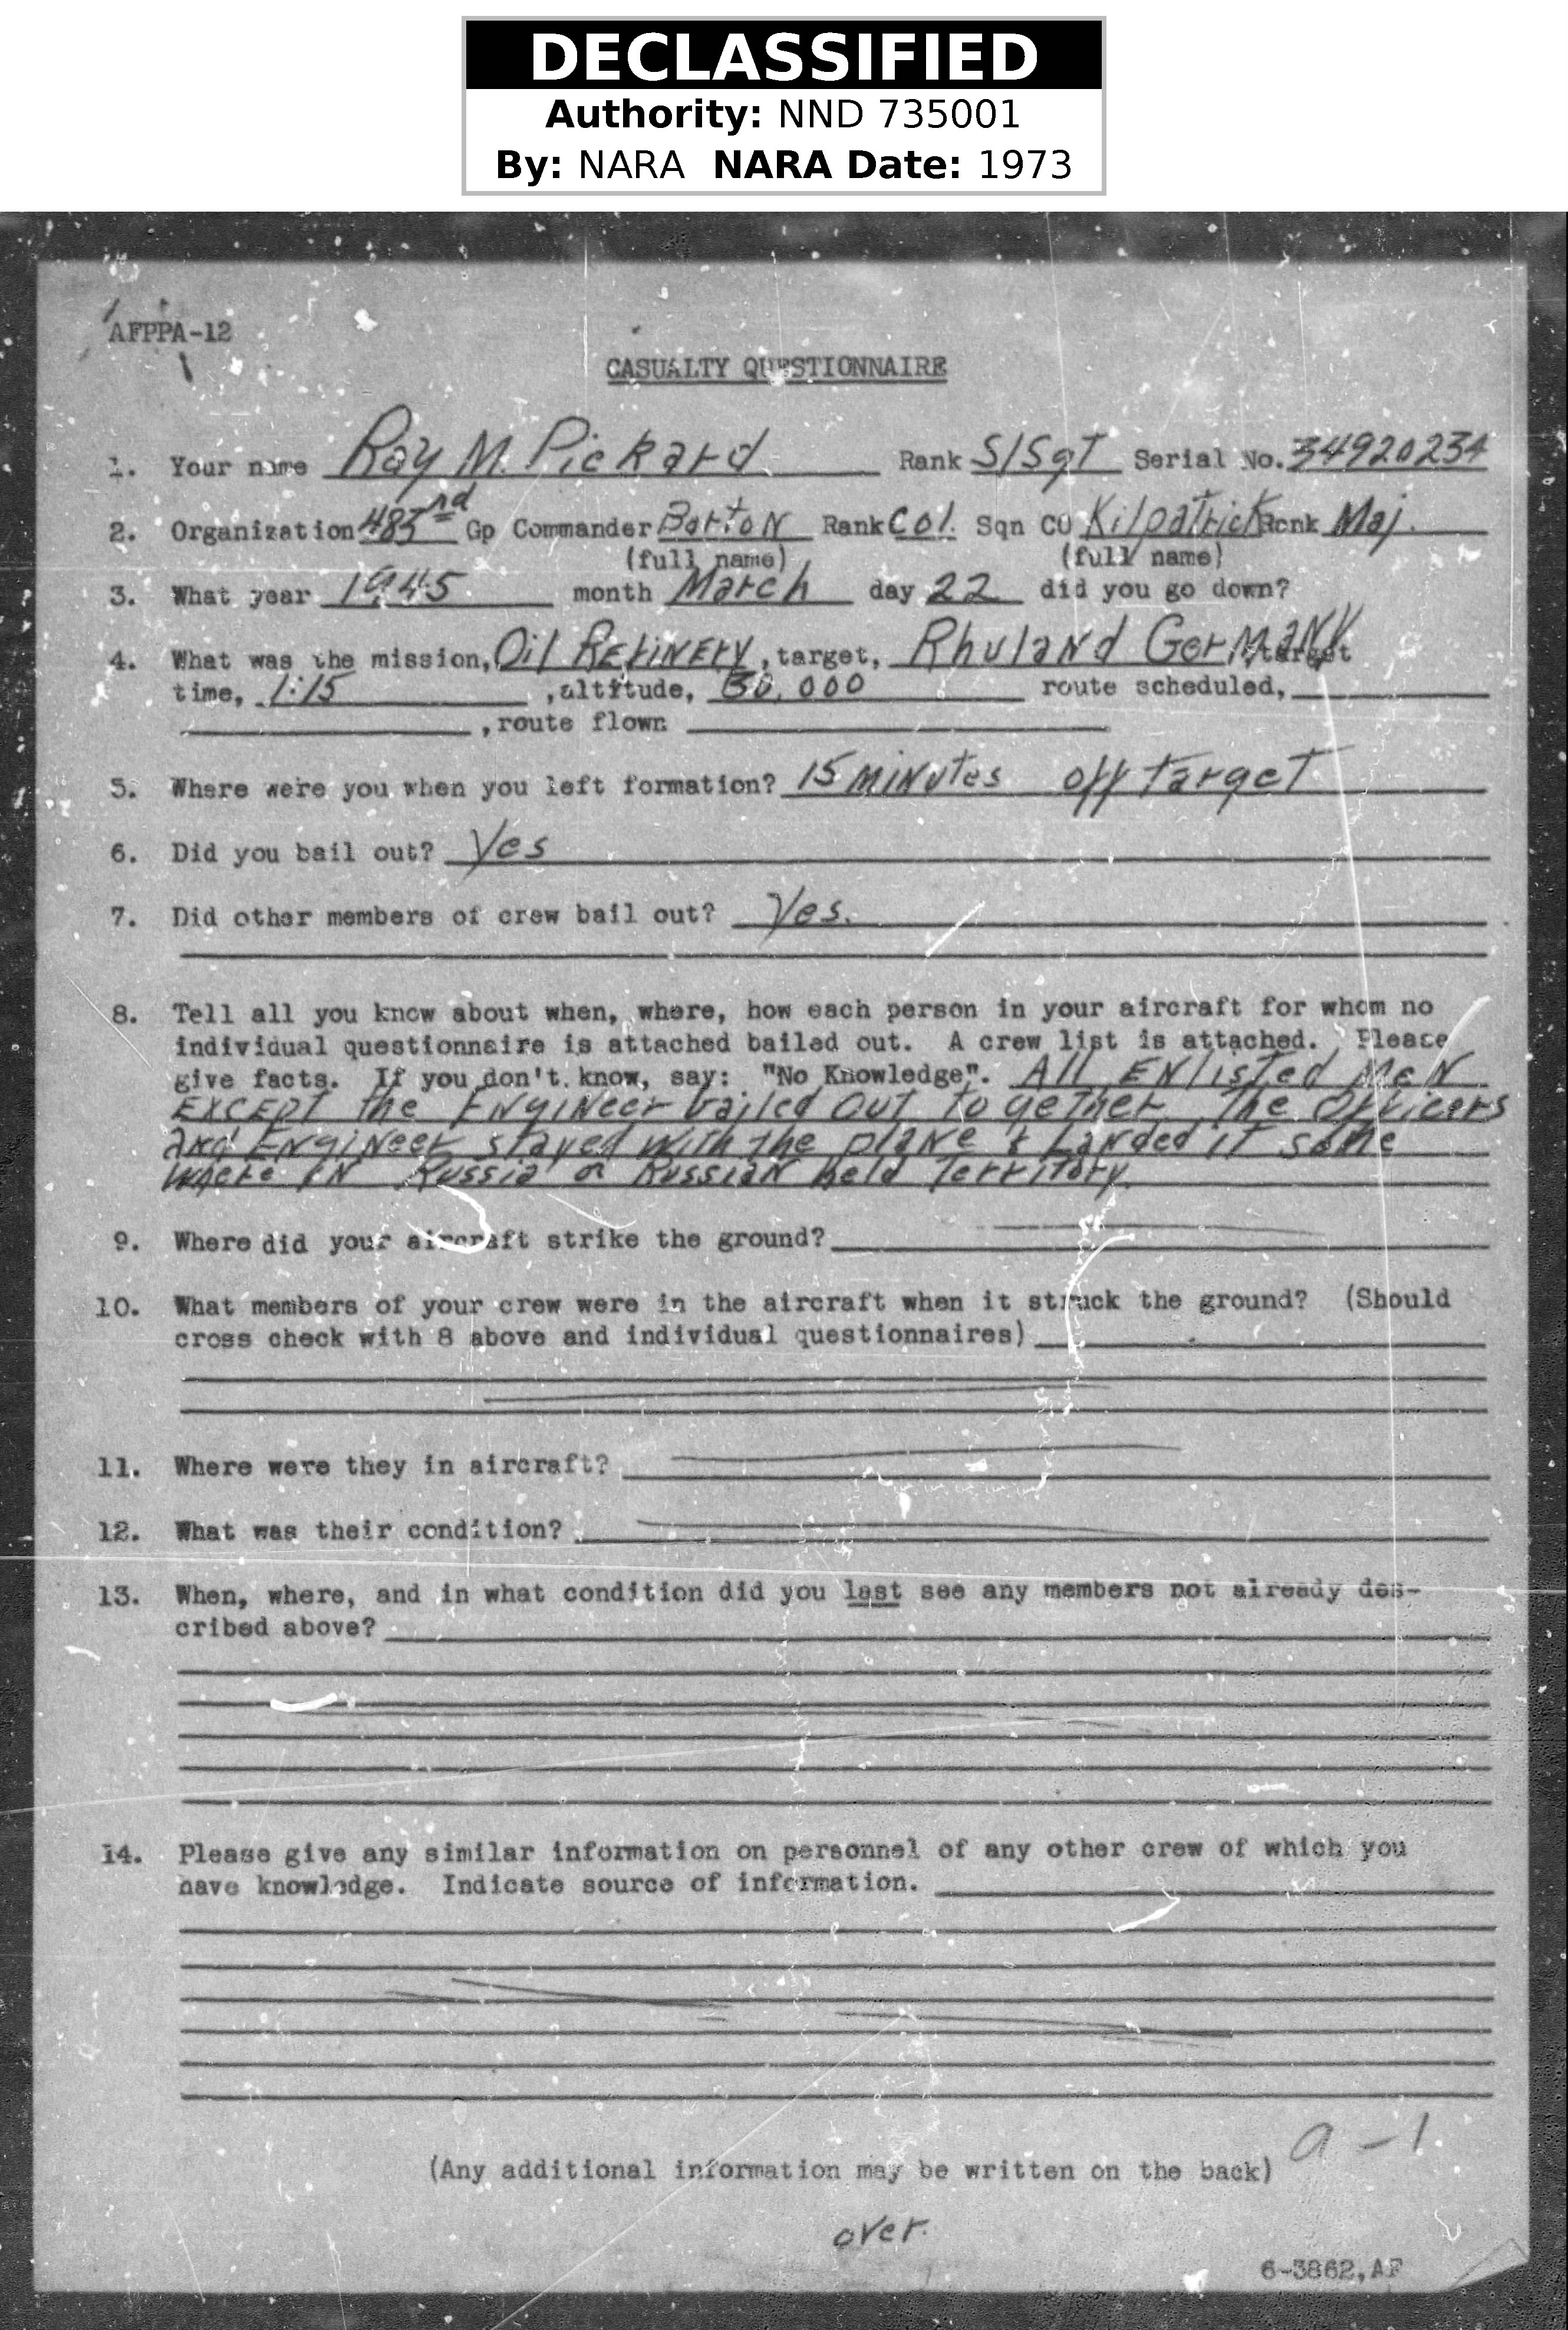 DECLASSIFIED
Authority: NND 735001
By: NARA NARA Date: 1973
AFPPA-12
CASUALTY QUESTIONNAIRE
1. Your name Ray M. Pickard Rank S/Sgt Serial No. 34920234
2. Organization 483rd Gp Commander Barton Rank Col. Sqn CO Kilpatrick Rank Maj.
(full name) (full name)
3. What year 1945 month March day 22 did you go down?
4. What was the mission, Oil Refinery, target, Rhuland Germany target
time, 1:15, altitude, 30,000 route scheduled,
, route flown
5. Where were you when you left formation? 15 minutes off target
6. Did you bail out? Yes
7. Did other members of crew bail out? Yes.
8. Tell all you know about when, where, how each person in your aircraft for whom no
individual questionnaire is attached bailed out. A crew list is attached. Please
give facts. If you don't know, say: "No Knowledge". All Enlisted Men
Except the Engineer bailed out together. The Officers
and Engineer stayed with the plane & Landed it some
where in Russia or Russian held Territory.
9. Where did your aircraft strike the ground?
10. What members of your crew were in the aircraft when it struck the ground? (Should
cross check with 8 above and individual questionnaires)
11. Where were they in aircraft?
12. What was their condition?
13. When, where, and in what condition did you last see any members not already des-
cribed above?
14. Please give any similar information on personnel of any other crew of which you
have knowledge. Indicate source of information.
a-1
(Any additional information may be written on the back)
over.
6-3862,AF